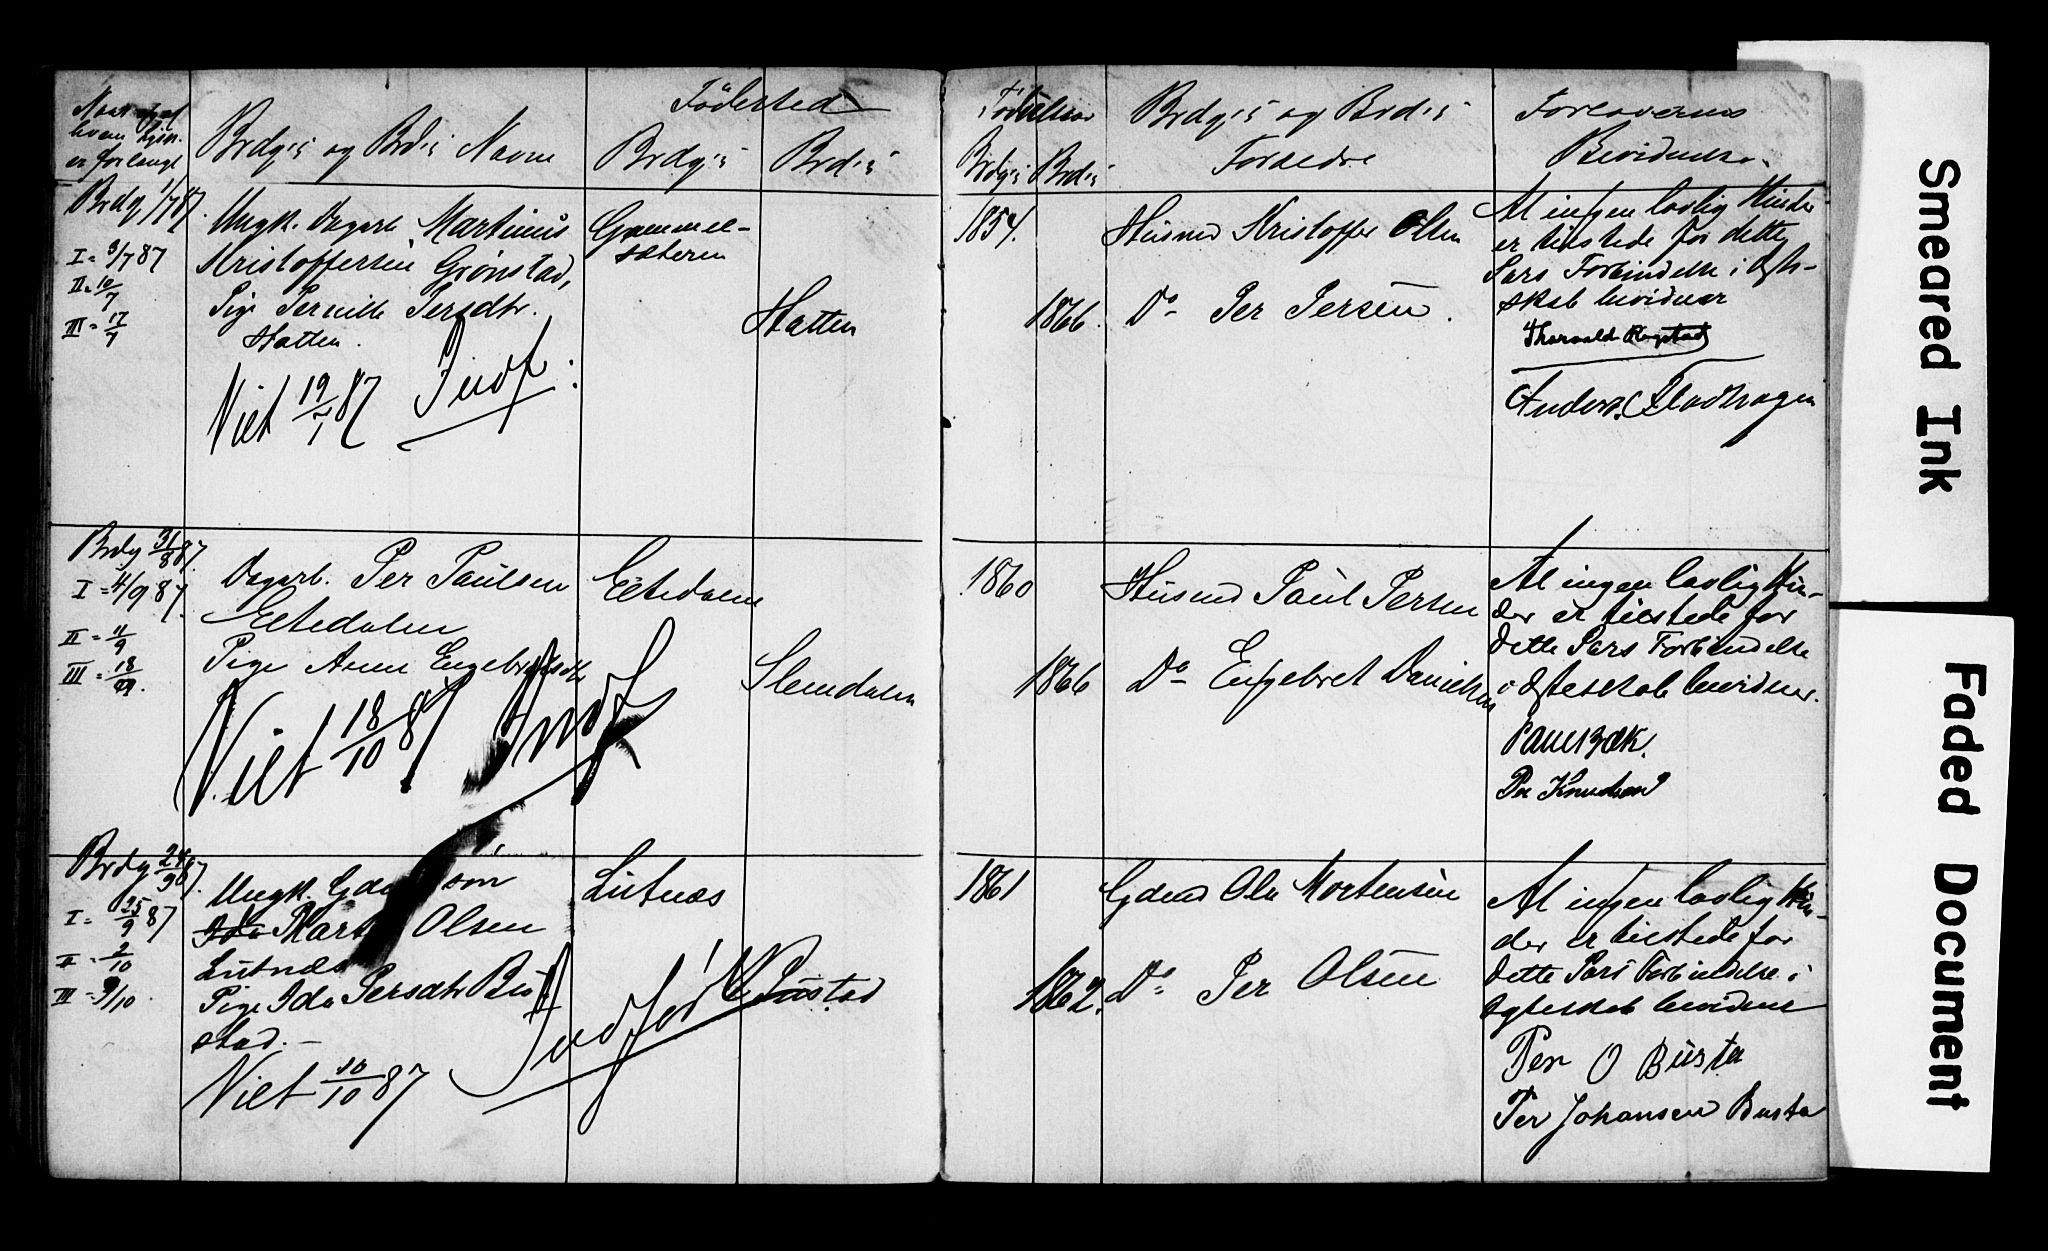 Naar og af
hvem Lysn.
er forlangt
Brdg.s og Brd.s Navne
Fødested
Brdg.s
Brd.s
Fødselsaar
Brdg.s
Brd.s
Brdg.s og Brd.s
Forældre
Forlovernes
Bevidnelse.
Brdg. 1/7 87.
I = 3/7 87
II = 10/7
III = 17/7
Ungk. Dagarb. Martinus
Kristoffersen Grønstad,
Pige Pernille Persdtr.
Hatten.
Viet 19/7 87 Indf:
Gammel-
sæteren
Hatten
1854.
1866.
Husmd Kristoffer Olsen
Do Per Persen.
At ingen lovlig Hinder
er tilstede for dette
Pars Forbindelse i Ægte-
skab bevidner
Thorvald Rogstad
Anders
Brdg 31/8 87.
I = 4/9 87.
II = 11/9
III = 18/9.
Dagarb. Per Paulsen
Eltedalen
Pige Anne Engebretsdtr
Viet 18/10 87 Indf
Eltedalen
Slemdalen
1860
1866
Husmd Paul Persen
Do Engebret Danielsen
At ingen lovlig Hin-
der er tilstede for
dette Pars Forbindelse
i Ægteskab bevidner.
Per Knudsen
Brdg 24/9 87.
I = 25/9 87
II = 2/10
III = 9/10.
Ungk. Gdm søn
Ida Mart Olsen
Lutnæs
Pige Ida Persdtr Bu
stad. —
Viet 10/10 87 Indført
Lutnæs
Bustad
1861
1862.
Gdmd Ole Mortensen
Do Per Olsen
At ingen lovlig Hin-
der er tilstede for
dette Pars Forbindelse i
Ægteskab bevidner
Per O Busta
Per Johansen Busta
Smeared Ink
Faded Document